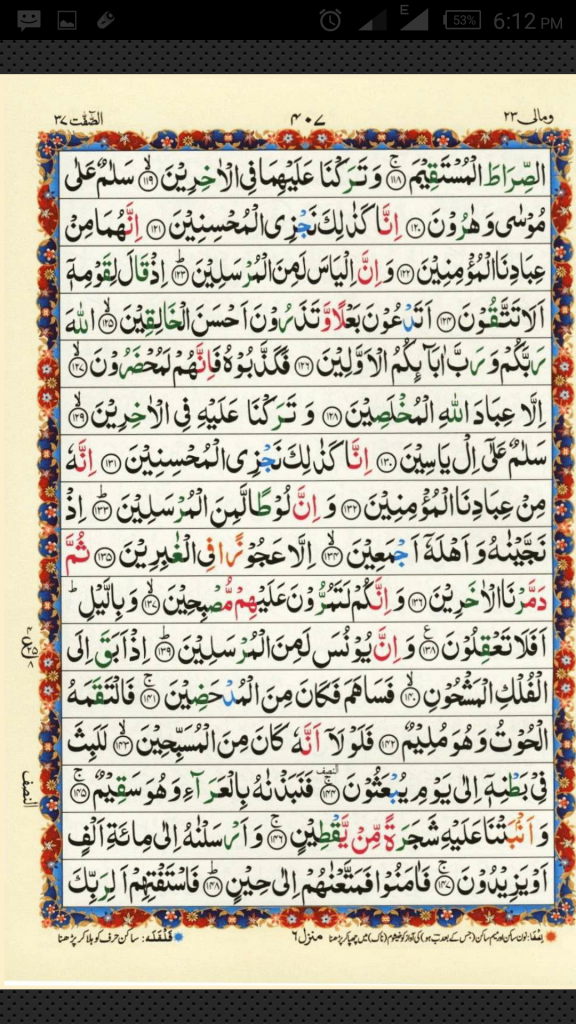 E 53% 6:12 PM
ومالی ٢٣ ٤٠٧ الصّٰٓفّٰت ٣٧
الصِّرَاطَ الْمُسْتَقِيْمَ ۚ‏﴿١١٨﴾ وَتَرَكْنَا عَلَيْهِمَا فِى الْاٰخِرِيْنَ ۙ‏﴿١١٩﴾ سَلٰمٌ عَلٰى
مُوْسٰى وَهٰرُوْنَ ﴿١٢٠﴾ اِنَّا كَذٰلِكَ نَجْزِى الْمُحْسِنِيْنَ ﴿١٢١﴾ اِنَّهُمَا مِنْ
عِبَادِنَا الْمُؤْمِنِيْنَ ﴿١٢٢﴾ وَاِنَّ اِلْيَاسَ لَمِنَ الْمُرْسَلِيْنَ ؕ‏﴿١٢٣﴾ اِذْ قَالَ لِقَوْمِهٖۤ
اَلَا تَتَّقُوْنَ ﴿١٢٤﴾ اَتَدْعُوْنَ بَعْلًا وَّتَذَرُوْنَ اَحْسَنَ الْخَالِقِيْنَ ۙ‏﴿١٢٥﴾ اللّٰهَ
رَبَّكُمْ وَرَبَّ اٰبَآٮِٕكُمُ الْاَوَّلِيْنَ ﴿١٢٦﴾ فَكَذَّبُوْهُ فَاِنَّهُمْ لَمُحْضَرُوْنَ ۙ‏﴿١٢٧﴾
اِلَّا عِبَادَ اللّٰهِ الْمُخْلَصِيْنَ ﴿١٢٨﴾ وَتَرَكْنَا عَلَيْهِ فِى الْاٰخِرِيْنَ ۙ‏﴿١٢٩﴾
سَلٰمٌ عَلٰٓى اِلْ يَاسِيْنَ ﴿١٣٠﴾ اِنَّا كَذٰلِكَ نَجْزِى الْمُحْسِنِيْنَ ﴿١٣١﴾ اِنَّهٗ
مِنْ عِبَادِنَا الْمُؤْمِنِيْنَ ﴿١٣٢﴾ وَاِنَّ لُوْطًا لَّمِنَ الْمُرْسَلِيْنَ ؕ‏﴿١٣٣﴾ اِذْ
نَجَّيْنٰهُ وَاَهْلَهٗۤ اَجْمَعِيْنَ ۙ‏﴿١٣٤﴾ اِلَّا عَجُوْزًا فِى الْغٰبِرِيْنَ ﴿١٣٥﴾ ثُمَّ
دَمَّرْنَا الْاٰخَرِيْنَ ﴿١٣٦﴾ وَاِنَّكُمْ لَتَمُرُّوْنَ عَلَيْهِمْ مُّصْبِحِيْنَ ۙ‏﴿١٣٧﴾ وَبِالَّيْلِ ؕ
اَفَلَا تَعْقِلُوْنَ ﴿١٣٨﴾ وَاِنَّ يُوْنُسَ لَمِنَ الْمُرْسَلِيْنَ ؕ‏﴿١٣٩﴾ اِذْ اَبَقَ اِلَى
الْفُلْكِ الْمَشْحُوْنِ ۙ‏﴿١٤٠﴾ فَسَاهَمَ فَكَانَ مِنَ الْمُدْحَضِيْنَ ۚ‏﴿١٤١﴾ فَالْتَقَمَهُ
الْحُوْتُ وَهُوَ مُلِيْمٌ ﴿١٤٢﴾ فَلَوْلَاۤ اَنَّهٗ كَانَ مِنَ الْمُسَبِّحِيْنَ ۙ‏﴿١٤٣﴾ لَلَبِثَ
فِىْ بَطْنِهٖۤ اِلٰى يَوْمِ يُبْعَثُوْنَ ۚ‏﴿١٤٤﴾ فَنَبَذْنٰهُ بِالْعَرَآءِ وَهُوَ سَقِيْمٌ ۚ‏﴿١٤٥﴾
النصف
وَاَنْۢبَتْنَا عَلَيْهِ شَجَرَةً مِّنْ يَّقْطِيْنٍ ۚ‏﴿١٤٦﴾ وَاَرْسَلْنٰهُ اِلٰى مِائَةِ اَلْفٍ
اَوْ يَزِيْدُوْنَ ۚ‏﴿١٤٧﴾ فَاٰمَنُوْا فَمَتَّعْنٰهُمْ اِلٰى حِيْنٍ ؕ‏﴿١٤٨﴾ فَاسْتَفْتِهِمْ اَلِرَبِّكَ
اِخفا: نون ساکن اور میم ساکن (جس کے بعد ب ہو) کی آواز کو خیشوم (ناک) میں چھپا کر پڑھنا منزل ٦ قَلْقَلَه: ساکن حرف کو ہلا کر پڑھنا